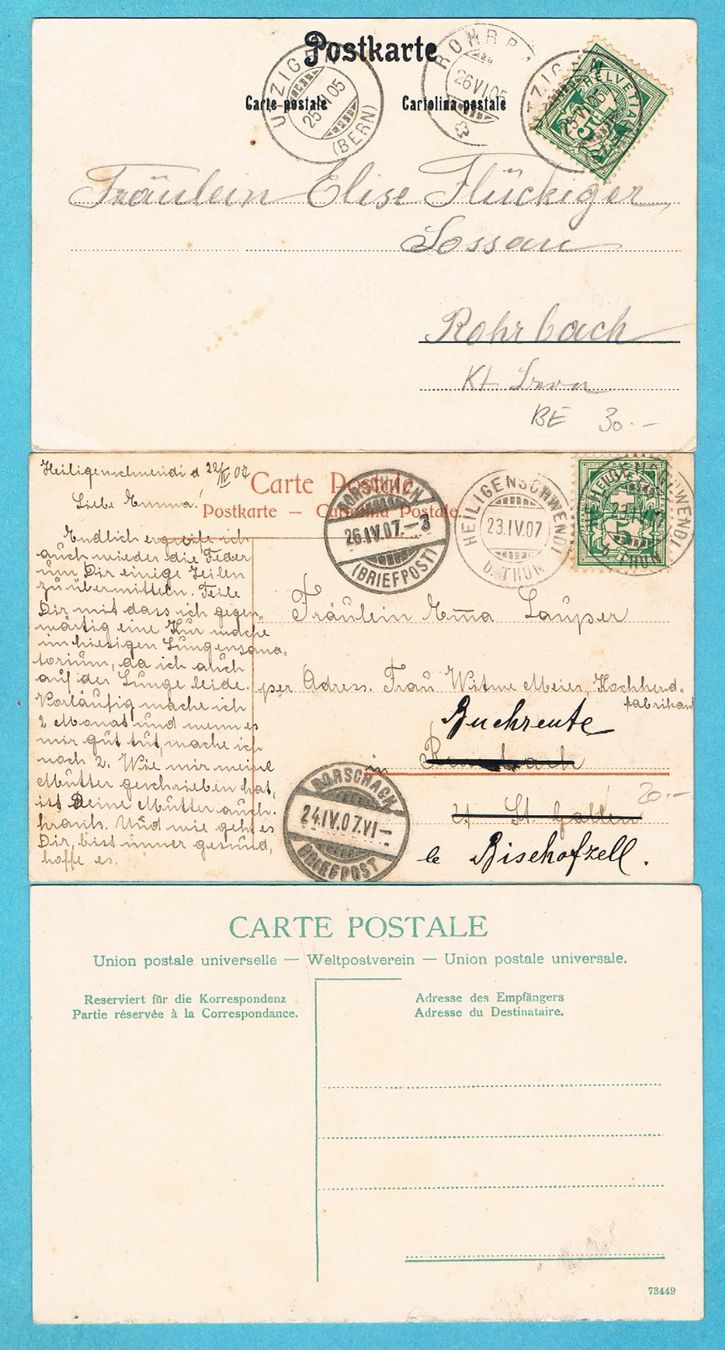 Postkarte
Carte postale Cartolina postale
UTZIGEN 25 VI 05 (BERN)
ROHRB 26 VI 05
UTZIGEN 25 VI 05
HELVETIA 5
Fräulein Elise Flückiger
Lossau
Rohrbach
Kt Bern
BE 30.-
Heiligenschwendi d 22/IV 07
Liebe Emma!
Endlich ergreife ich
auch wieder die Feder
um Dir einige Zeilen
zu übermitteln. Teile
Dir mit dass ich gegen-
wärtig eine Kur mache
im hiesigen Lungensana-
torium, da ich auch
auf der Lunge leide.
Vorläufig mache ich
2 Monat und wenn es
mir gut tut mache ich
noch 2. Wie mir meine
Mutter geschrieben hat,
ist Deine Mutter auch
krank. Und wie geht es
Dir, bist immer gesund,
hoffe es.
Carte Postale
Postkarte – Cartolina Postale.
RORSCHACH 26.IV.07.–3 (BRIEFPOST)
HEILIGENSCHWENDI 23.IV.07 O. THUN
HELVETIA 5
HEILIGENSCHWENDI 23.IV.07 O. THUN
Fräulein Emma Lauper
per Adress. Frau Witwe Meier, Kochherd-
fabrikant
Buchreute
in
Kt St. Gallen
20.-
b/ Bischofzell.
RORSCHACH 24.IV.07.VI– BRIEFPOST
CARTE POSTALE
Union postale universelle — Weltpostverein — Union postale universale.
Reserviert für die Korrespondenz
Partie réservée à la Correspondance.
Adresse des Empfängers
Adresse du Destinataire.
73449